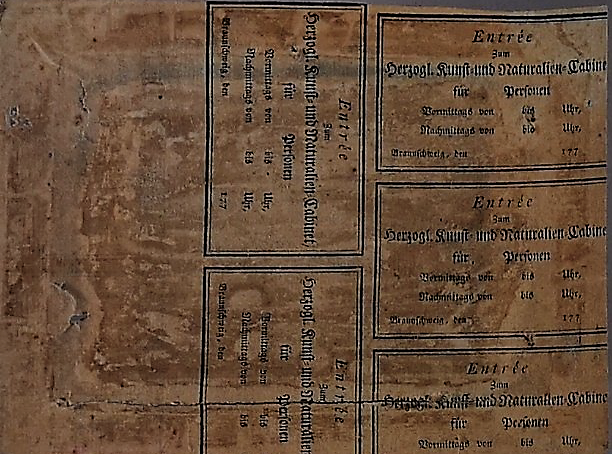 Entrée
Zum
Herzogl. Kunst- und Naturalien-Cabinet
für Personen
Vormittags von bis Uhr,
Nachmittags von bis Uhr,
Braunschweig, den 177
Entrée
Zum
Herzogl. Kunst- und Naturalien
für Personen
Vormittags von bis
Nachmittags von bis
Braunschweig, den
Entrée
Zum
Herzogl. Kunst- und Naturalien-Cabine
für Personen
Vormittags von bis Uhr,
Nachmittags von bis Uhr,
Braunschweig, den 177
Entrée
Zum
Herzogl. Kunst- und Naturalien-Cabine
für Personen
Vormittags von bis Uhr,
Nachmittags von bis Uhr,
Braunschweig, den 177
Entrée
Zum
Herzogl. Kunst- und Naturalien-Cabine
für Personen
Vormittags von bis Uhr,